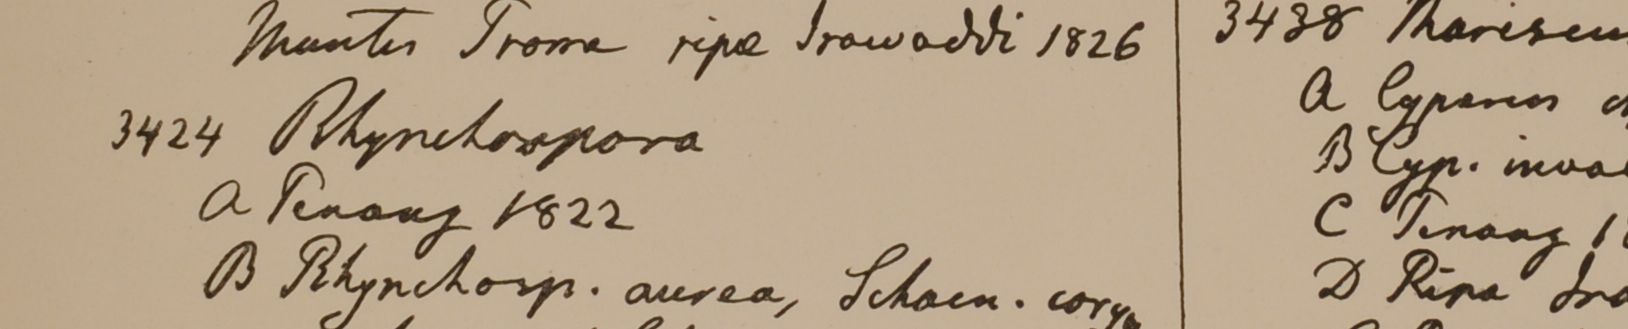 Montes Prome ripæ Irawaddi 1826
3424 Rhynchospora
A Penang 1822
B Rhynchosp. aurea, Schoen. corym
3438 Mariscu
A Cyperus
B Cyp. invo
C Penang 1
D Ripa Ira